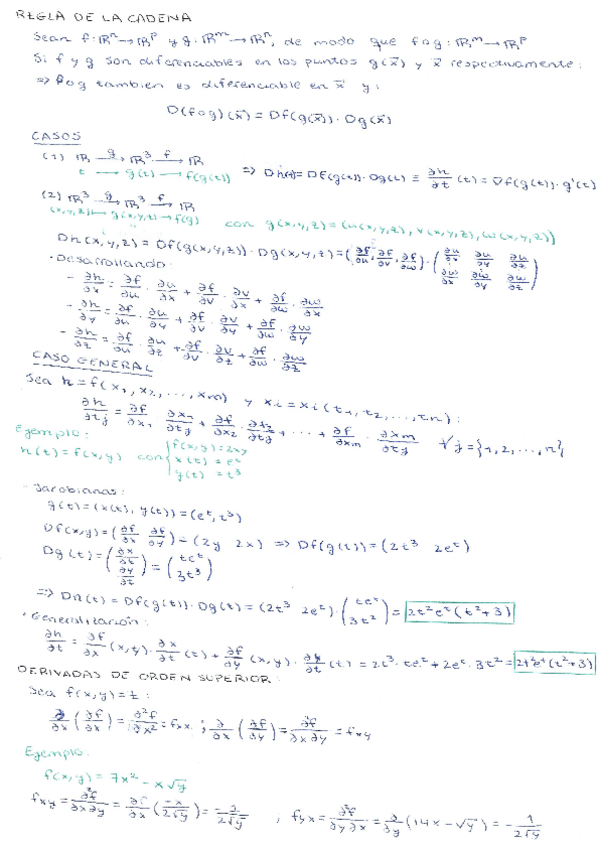 REGLA DE LA CADENA
Sean f: ℝⁿ→ℝᵖ y g: ℝᵐ→ℝⁿ, de modo que f∘g: ℝᵐ→ℝᵖ
Si f y g son diferenciables en los puntos g(x̄) y x̄ respectivamente:
⇒ f∘g también es diferenciable en x̄ y:
D(f∘g)(x̄) = Df(g(x̄)) · Dg(x̄)
CASOS
(1) ℝ —g→ ℝ³ —f→ ℝ
t → g(t) → f(g(t)) ⇒ Dh(t) = Df(g(t)) · Dg(t) ≡ ∂h/∂t (t) = ∇f(g(t)) · g'(t)
(2) ℝ³ —g→ ℝ³ —f→ ℝ
(x,y,z) → g(x,y,z) → f(g) con g(x,y,z) = (u(x,y,z), v(x,y,z), w(x,y,z))
Dh(x,y,z) = Df(g(x,y,z)) · Dg(x,y,z) = (∂f/∂u, ∂f/∂v, ∂f/∂w) · (∂u/∂x ∂u/∂y ∂u/∂z
∂w/∂x ∂w/∂y ∂w/∂z)
· Desarrollando:
- ∂h/∂x = ∂f/∂u · ∂u/∂x + ∂f/∂v · ∂v/∂x + ∂f/∂w · ∂w/∂x
- ∂h/∂y = ∂f/∂u · ∂u/∂y + ∂f/∂v · ∂v/∂y + ∂f/∂w · ∂w/∂y
- ∂h/∂z = ∂f/∂u · ∂u/∂z + ∂f/∂v · ∂v/∂z + ∂f/∂w · ∂w/∂z
CASO GENERAL
Sea h = f(x₁, x₂, ..., xm) y xi = xi(t₁, t₂, ..., tn):
∂h/∂tj = ∂f/∂x₁ · ∂x₁/∂tj + ∂f/∂x₂ · ∂x₂/∂tj + ··· + ∂f/∂xm · ∂xm/∂tj ∀j = {1, 2, ..., n}
Ejemplo:
h(t) = f(x,y) con { f(x,y) = 2xy
x(t) = eᵗ
y(t) = t³
- Jacobianas:
g(t) = (x(t), y(t)) = (eᵗ, t³)
Df(x,y) = (∂f/∂x ∂f/∂y) = (2y 2x) ⇒ Df(g(t)) = (2t³ 2eᵗ)
Dg(t) = (∂x/∂t
∂y/∂t) = (teᵗ
3t³)
⇒ Dh(t) = Df(g(t)) · Dg(t) = (2t³ 2eᵗ) · (teᵗ
3t²) = 2t²eᵗ(t²+3)
· Generalización:
∂h/∂t = ∂f/∂x (x,y) · ∂x/∂t (t) + ∂f/∂y (x,y) · ∂y/∂t (t) = 2t³ · teᵗ + 2eᵗ · 3t² = 2t²eᵗ(t²+3)
DERIVADAS DE ORDEN SUPERIOR:
Sea f(x,y) = t:
∂/∂x (∂f/∂x) = ∂²f/∂x² = fxx ; ∂/∂x (∂f/∂y) = ∂²f/∂x∂y = fxy
Ejemplo:
f(x,y) = 7x² − x√y
fxy = ∂²f/∂x∂y = ∂f/∂x (−x/2√y) = −1/2√y , fyx = ∂²f/∂y∂x = ∂/∂y (14x − √y) = −1/2√y